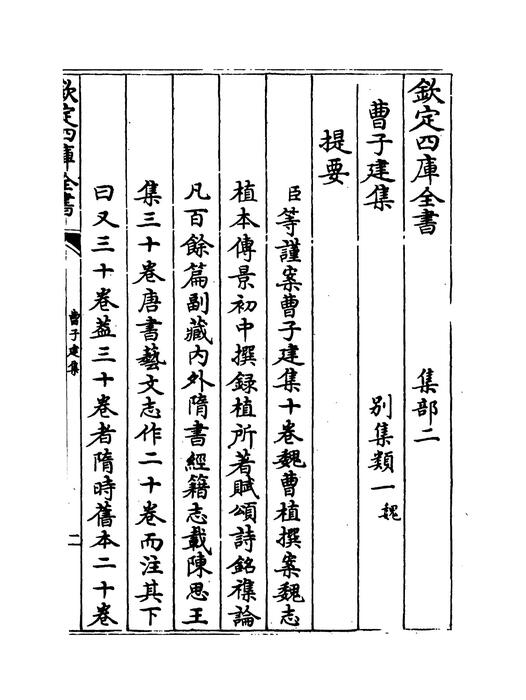 欽定四庫全書　集部二
曹子建集　别集類一魏
提要
臣等謹案曹子建集十卷魏曹植撰案魏志
植本傳景初中撰録植所著賦頌詩銘襍論
凡百餘篇副藏内外隋書經籍志載陳思王
集三十卷唐書藝文志作二十卷而注其下
曰又三十卷葢三十卷者隋時舊本二十卷
欽定四庫全書　曹子建集　二